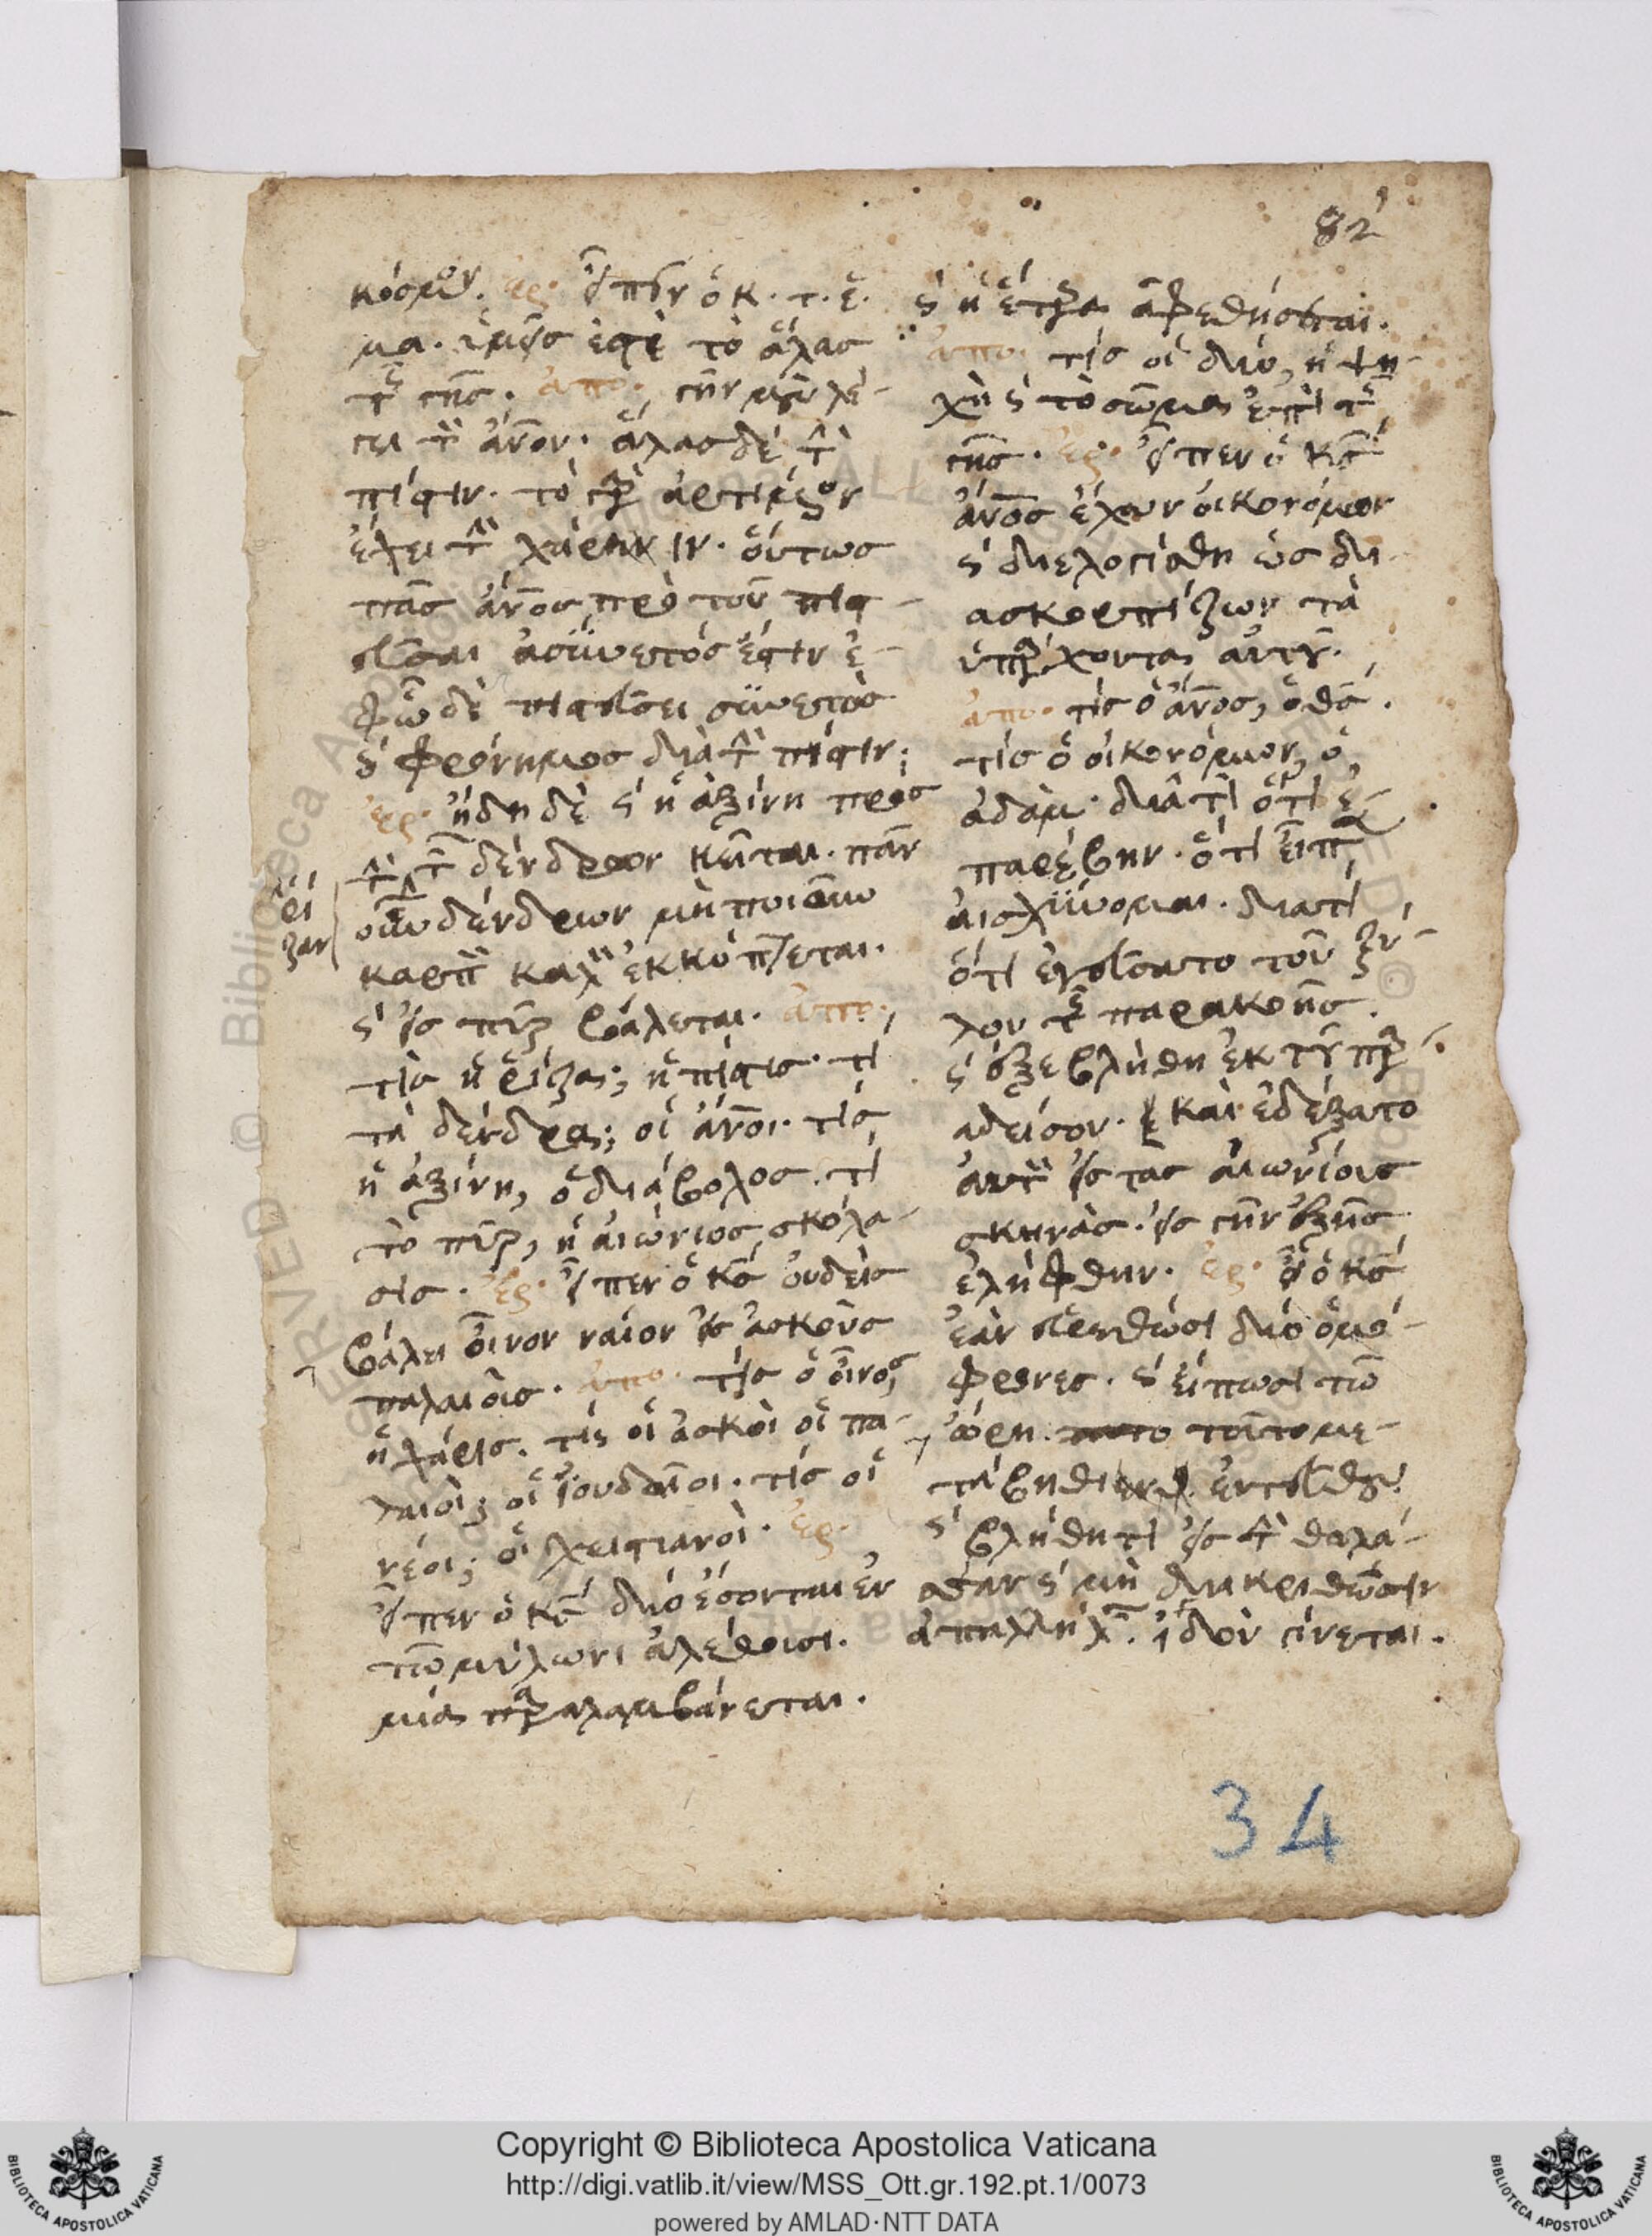 82
κόσμου. ἐρ. εἶπεν ὁ κ. τ. ἑ.
μα. ὑμεῖς ἐστὲ τὸ ἅλας
τῆς γῆς. ἀπο. γῆν μὲν λέ-
γει τὸν ἄνον. ἅλας δὲ τὴν
πίστιν. τὸ γὰρ ἄρτιμον
ἔχει τὴν χάριν. οὕτως
πᾶς ἄνος πρὸ τοῦ πιστ-
εῦσαι ἀσύνετός ἐστιν ἐ-
φῶ δὲ πιστεύσει συνετὸς
καὶ φρόνημος διὰ τὴν πίστιν;
ἐρ. ἤδη δὲ καὶ ἡ ἀξίνη προς
τὴν τῶν δένδρον κεῖται. πᾶν
ῥί
ζαν
οὖν δένδρων μὴ ποιοῦν
καρπὸν καλὸν ἐκκόπτεται.
καὶ εἰς πῦρ βάλεται. ἀπο.
τίς ἡ ῥίζα; ἡ πίστις. τί
τὰ δένδρα; οἱ ἄνοι. τίς
ἡ ἀξίνη, ὁ διάβολος. τί
τὸ πῦρ, ἡ αἰώνιος σκόλα-
σις. ἐρ. εἶπεν ὁ κς οὐδεὶς
βάλει οἶνον ναίον εἰς ἀσκοὺς
παλαιοὶς. ἀπο. τίς ὁ οἶνος
ἡ χάρις. τίς οἱ ἀσκοὶ οἱ πα-
λαιοὶ; οἱ ἰουδαῖοι. τίς οἱ
νέοι; οἱ χριστιανοὶ. ἐρ.
εἶπεν ὁ κς δύο ἔσονται ἐν
τῶ μύλωνι ἀλέθουσι.
μία παραλαμβάνεται.
καὶ ἡ ἑτέρα ἀφεθήσεται.
ἀπο. τίς οἱ δύο, ἡ ψη-
χὴ καὶ τὸ σῶμα ἐπὶ τῆς
γῆς. ἐρ. εἶπεν ὁ κς
ἄνος ἔχων οἰκονόμον
καὶ διελογίσθη ὡς δι
ασκορπίζων τὰ
ὑπάρχοντα αὐτοῦ.
ἀπο. τίς ὁ ἄνος, ὁ θς.
τίς ὁ οἰκονόμον, ὁ
ἀδάμ. διὰ τί ὅτι ἐ-
παρέβην. ὅτι εἶπα
αἰσχύνομαι. διατί
ὅτι ἐγεύσατο τοῦ ξύ-
λου τῆς παρακοῆς.
καὶ ἐξεβλήθη ἐκ τοῦ παρ
αδείσου. καὶ ἐδέξατο
αὐτὸν εἰς τὰς αἰωνίους
σκηνάς. εἰς γῆν ἐξ ἧς
ἐλήφθην. ἐρ. εἶπεν ὁ κς
ἐὰν εὑρεθῶσι δύο ὁμό-
φρονες. καὶ εἴπωσι τῶ
ὄρη τοῦτο με-
τάβηθι ἐντεῦθεν
καὶ βλήθητι εἰς τὴν θαλά-
σσαν καὶ μὴ διακριθῶσιν
ἀπαλλήλων. ἰδοὺ γίνεται.
34
Copyright © Biblioteca Apostolica Vaticana
http://digi.vatlib.it/view/MSS_Ott.gr.192.pt.1/0073
powered by AMLAD·NTT DATA
BIBLIOTECA APOSTOLICA VATICANA
BIBLIOTECA APOSTOLICA VATICANA